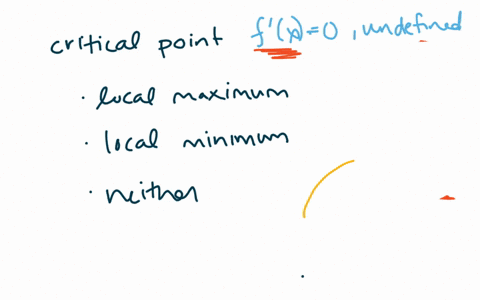 critical point f'(x)=0, undefined
· local maximum
· local minimum
· neither